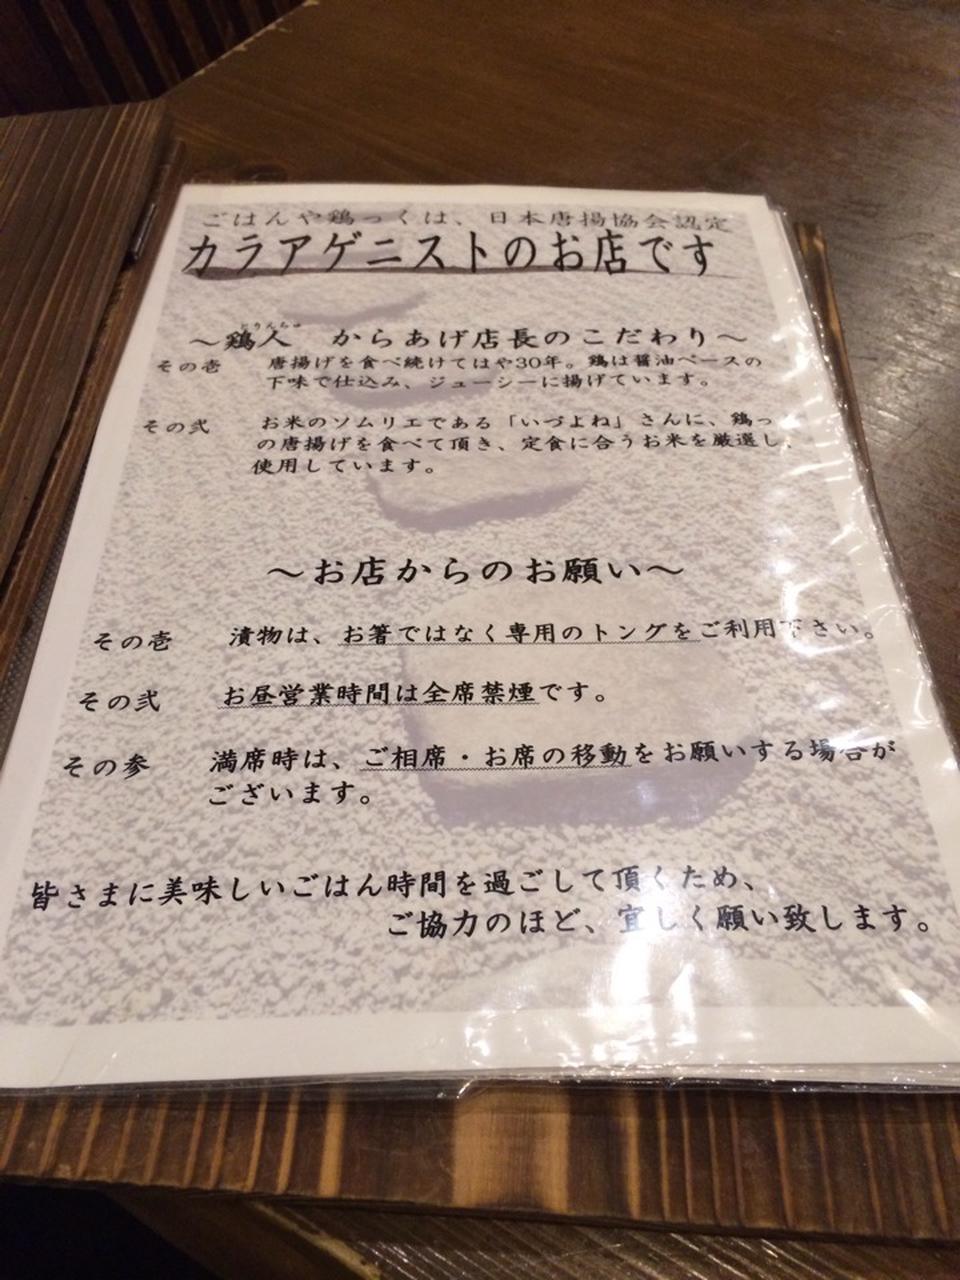 ごはんや鶏っくは、日本唐揚協会認定
カラアゲニストのお店です
～鶏人 からあげ店長のこだわり～
その壱 唐揚げを食べ続けてはや30年。鶏は醤油ベースの
下味で仕込み、ジューシーに揚げています。
その弐 お米のソムリエである「いづよね」さんに、鶏っ
の唐揚げを食べて頂き、定食に合うお米を厳選し、
使用しています。
～お店からのお願い～
その壱 漬物は、お箸ではなく専用のトングをご利用下さい。
その弐 お昼営業時間は全席禁煙です。
その参 満席時は、ご相席・お席の移動をお願いする場合が
ございます。
皆さまに美味しいごはん時間を過ごして頂くため、
ご協力のほど、宜しく願い致します。